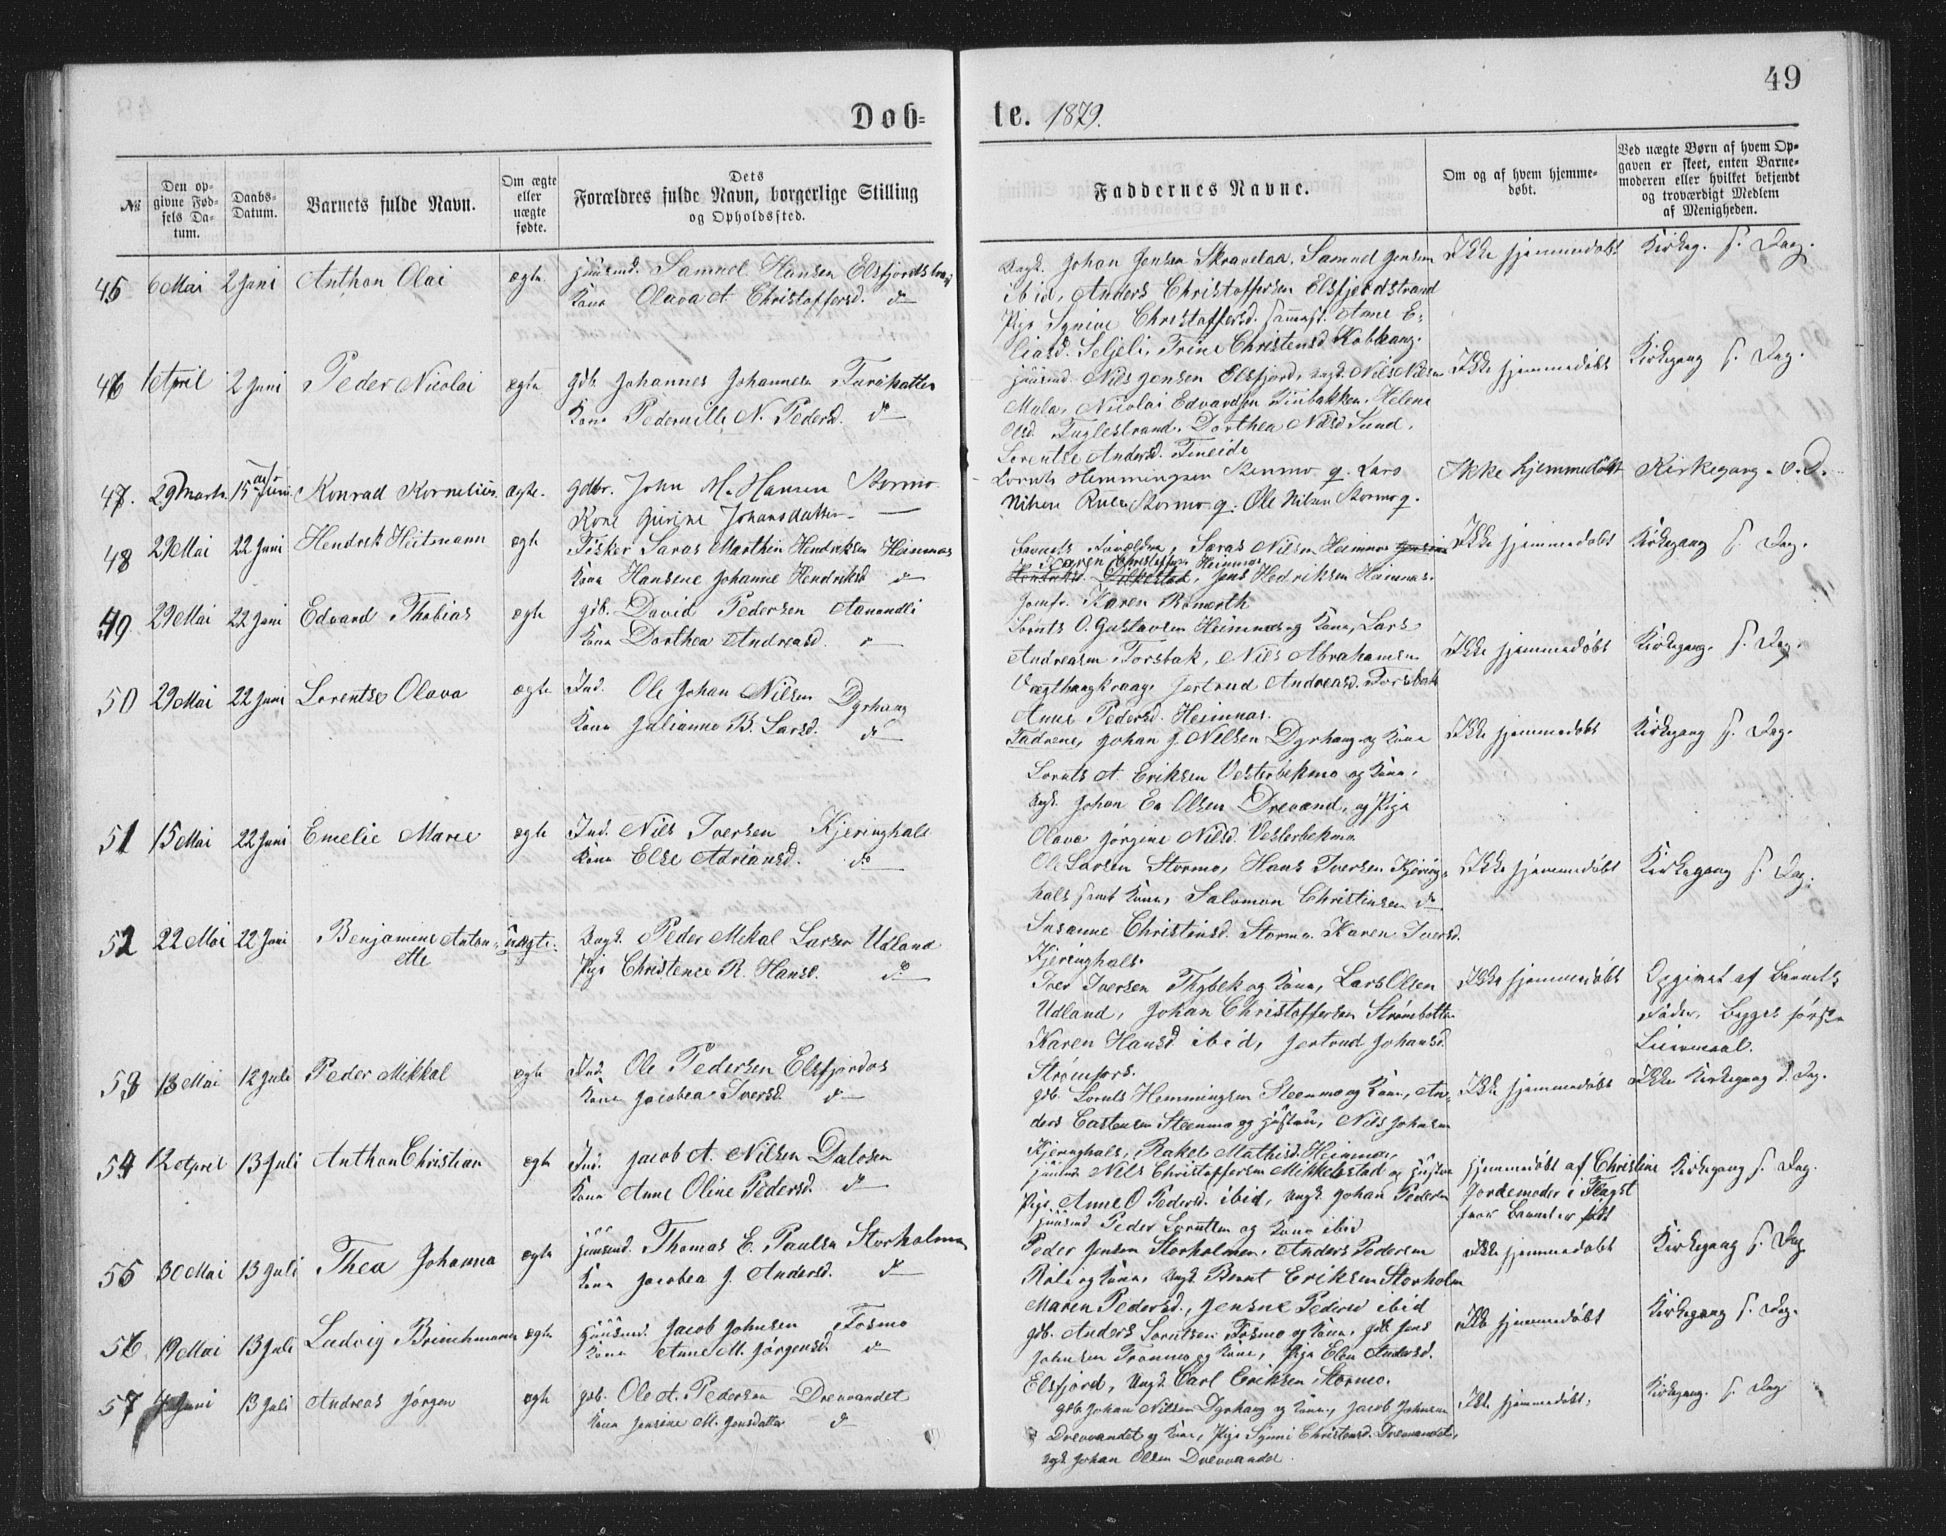 49
Døb= te. 1879.
№
Den op-
givne Fød-
sels Da-
tum.
Daabs-
Datum.
Barnets fulde Navn.
Om ægte
eller
uægte
fødte.
Dets
Forældres fulde Navn, borgerlige Stilling
og Opholdssted.
Faddernes Navne.
Om og af hvem hjemme-
døbt.
Ved uægte Børn af hvem Op-
gaven er skeet, enten Barne-
moderen eller hvilket bekjendt
og troværdigt Medlem
af Menigheden.
45 6 Mai 2 Juni Anthon Olai ægte Huusmd. Samuel Hansen Elsfjordstrand
Kona Olava A. Christoffersd. do
Ungk. Johan Jensen Skravelaa, Samuel Jensen
ibid, Anders Christoffersen Elsfjordstrand
Pige Synive Christoffersd. sammest. Anne E-
liasd. Seljeli, Trine Christensd.
Ikke hjemmedøbt Kirkeg. s. Dag.
46 1 April 2 Juni Peder Nicolai ægte Gdb. Johannes Johannesen
Kona Pedernille N. Pedersd. do
Huusmd. Nils Jensen Elsfjord, Ungk. Nils Nilsen
Mula, Nicolai Edvardsen Helene
Olsd. Fuglestrand. Dorthea Nilsd Sund,
Lorentse Andersd. Fineide
Ikke hjemmedøbt Kirkegang s. Dag.
47. 29 Marts. 15 Juni Konrad Kornelius. ægte. Gdbr. John M. Hansen Stormo
Kone Gurine Johansdatter —
Lornts Hemmingsen Stenmo g. Lars
Nilsen Stormo g. Ole Nilsen Stormo g.
Ikke hjemmedøbt Kirkegang s. D.
48 29 Mai 22 Juni Hendrik Heitmann ægte Fisker Saras Marthin Hendriksen Heimnæs
Kona Hansene Johanne Hendriksd do
Barnets Forældre, Saras Nilsen Heimnes
Karen Christoffers. Heimnæs
Jens Hedriksen Heimnæs.
Jomfr. Karen
Ikke hjemmedøbt Kirkegang s. Dag.
49 29 Mai 22 Juni Edvard Thobias ægte Gdb. David Pedersen
Kona Dorthea Andreasd.
Lornts O. Gustavsen Heimnæs og Kona, Lars
Andreasen Forsbak, Nils Abrahamsen
Jertrud Andreasd. Forsbak
Anne Pedersd. Heimnæs.
Ikke hjemmedøbt Kirkegang. s. Dag.
50 29 Mai 22 Juni Lorentse Olava ægte Ind. Ole Johan Nilsen Dyrhaug
Kona Julianna B. Larsd. do
Johan J. Nilsen Dyrhaug og Kona
Lornts A. Eriksen Vesterbekmo og Kona,
Ungk. Johan Ea Olsen Drevand, og Pige
Olava Jørgine Nilsd. Vesterbekmo.
Ikke hjemmedøbt Kirkegang s. Dag.
51 15 Mai 22 Juni Emelie Marie ægte Ind. Nils Iversen Kjeringhals
Kona Else Adriansd. do
Ole Larsen Stormo, Hans Iversen Kjering-
hals samt Kona, Salomon Christensen do
Susanne Christensd. Stormo. Karen Iversd.
Kjeringhals.
Ikke hjemmedøbt Kirkegang s. Dag.
52 22 Mai 22 Juni Benjamine Anton-
ette uægte. Ungk. Peder Mikal Larsen Udland
Pige Christence R. Hansd. do
Iver Iversen Thybek og Kona, Lars Olsen
Udland, Johan Christoffersen Strømbotten
Karen Hansd. ibid, Jertrud Johansd.
Strømfors.
Ikke hjemmedøbt Opgivet af Barnets
Fader, Begges første
Leiermaal.
53 18 Mai 12 Juli Peder Mikkal ægte Ind. Ole Pedersen Elsfjordos
Kona Jacobea Iversd. do
Gdb. Lornts Hemmingsen Steenmo og Kona, An-
ders Castensen Steenmo og Hustru, Nils Johnsen
Kjeringhals, Rakel Mathisd. Heimnæs,
Ikke hjemmedøbt Ikke Kirkegang s. Dag.
54 12 April 13 Juli Anthon Christian ægte Ind. Jacob A. Nilsen Dalosen
Kona Anne Oline Pedersd. do
Huusmd. Nils Christoffersen Mikkelstad og Hustru
Pige Anne O Pedersd. ibid, Ungk. Johan Pedersen
Huusmd Peder Lorntsen og Kona ibid
Hjemmedøbt af Christine
Jordemoder i
hvor Barnet er født
Kirkegang s. Dag.
55 30 Mai 13 Juli Thea Johanna ægte Huusmd. Thomas E. Paulsen Storholmen
Kona Jacobea J. Andersd. do
Peder Jensen Storholmen, Anders Pedersen
og Kona, Ungk. Bernt Eriksen Storholm
Maren Pedersd., Jensine Pedersd ibid
Ikke hjemmedøbt Kirkegang s. Dag.
56 19 Mai 13 Juli Ludvig Brinchmann ægte Huusmd. Jacob Johnsen Fosmo
Kona Anne M. Jørgensd. do
Gdb. Anders Lorntsen Fosmo og Kona, Gdb Jens
Johnsen og Kone, Pige Elen Andersd.
Elsfjord, Ungk. Carl Eriksen Stormo.
Ikke hjemmedøbt Kirkegang s. Dag.
57 4 Juni 13 Juli Andreas Jørgen ægte Gdb. Ole A. Pedersen Drevvandet
Kona Jensine M. Jensdatter do
Gdb. Johan Nilsen Dyrhaug og Kona, Jacob Johnsen
Drevvandet og Kona, Pige Synni Christensd. Drevvandet,
Ungk Johan Olsen Drevvandet.
Ikke hjemmedøbt, Kirkegang. s. Dag